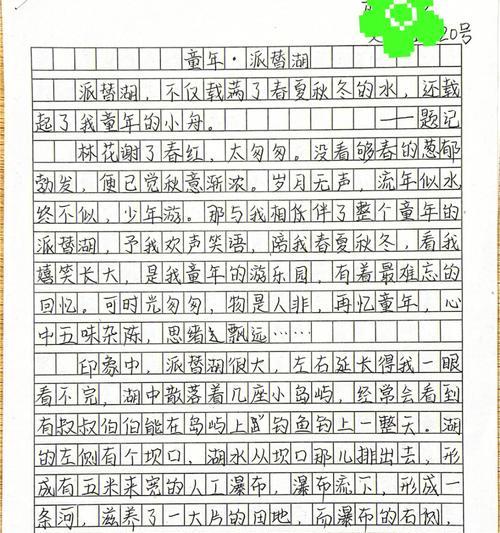 20号
童年·派替湖
派替湖，不仅载满了春夏秋冬的水，还载
起了我童年的小舟。——题记
林花谢了春红，太匆匆。没看够春的葱郁
勃发，便已觉秋意渐浓。岁月无声，流年似水，
终不似，少年游。那与我相依伴了整个童年的
派替湖，予我欢声笑语，陪我春夏秋冬，看我
嬉笑长大，是我童年的游乐园，有着最难忘的
回忆。可时光匆匆，物是人非，再忆童年，心
中五味杂陈，思绪飘远……
印象中，派替湖很大，左右延长得我一眼
看不完，湖中散落着几座小岛屿，经常会看到
有叔叔伯伯能在岛屿上钓鱼钓上一整天。湖
的左侧有个坝口，湖水从坝口那儿排出去，形
成有五米来宽的人工瀑布，瀑布流下，形成一
条河，滋养了一大片的田地，而瀑布的右侧，